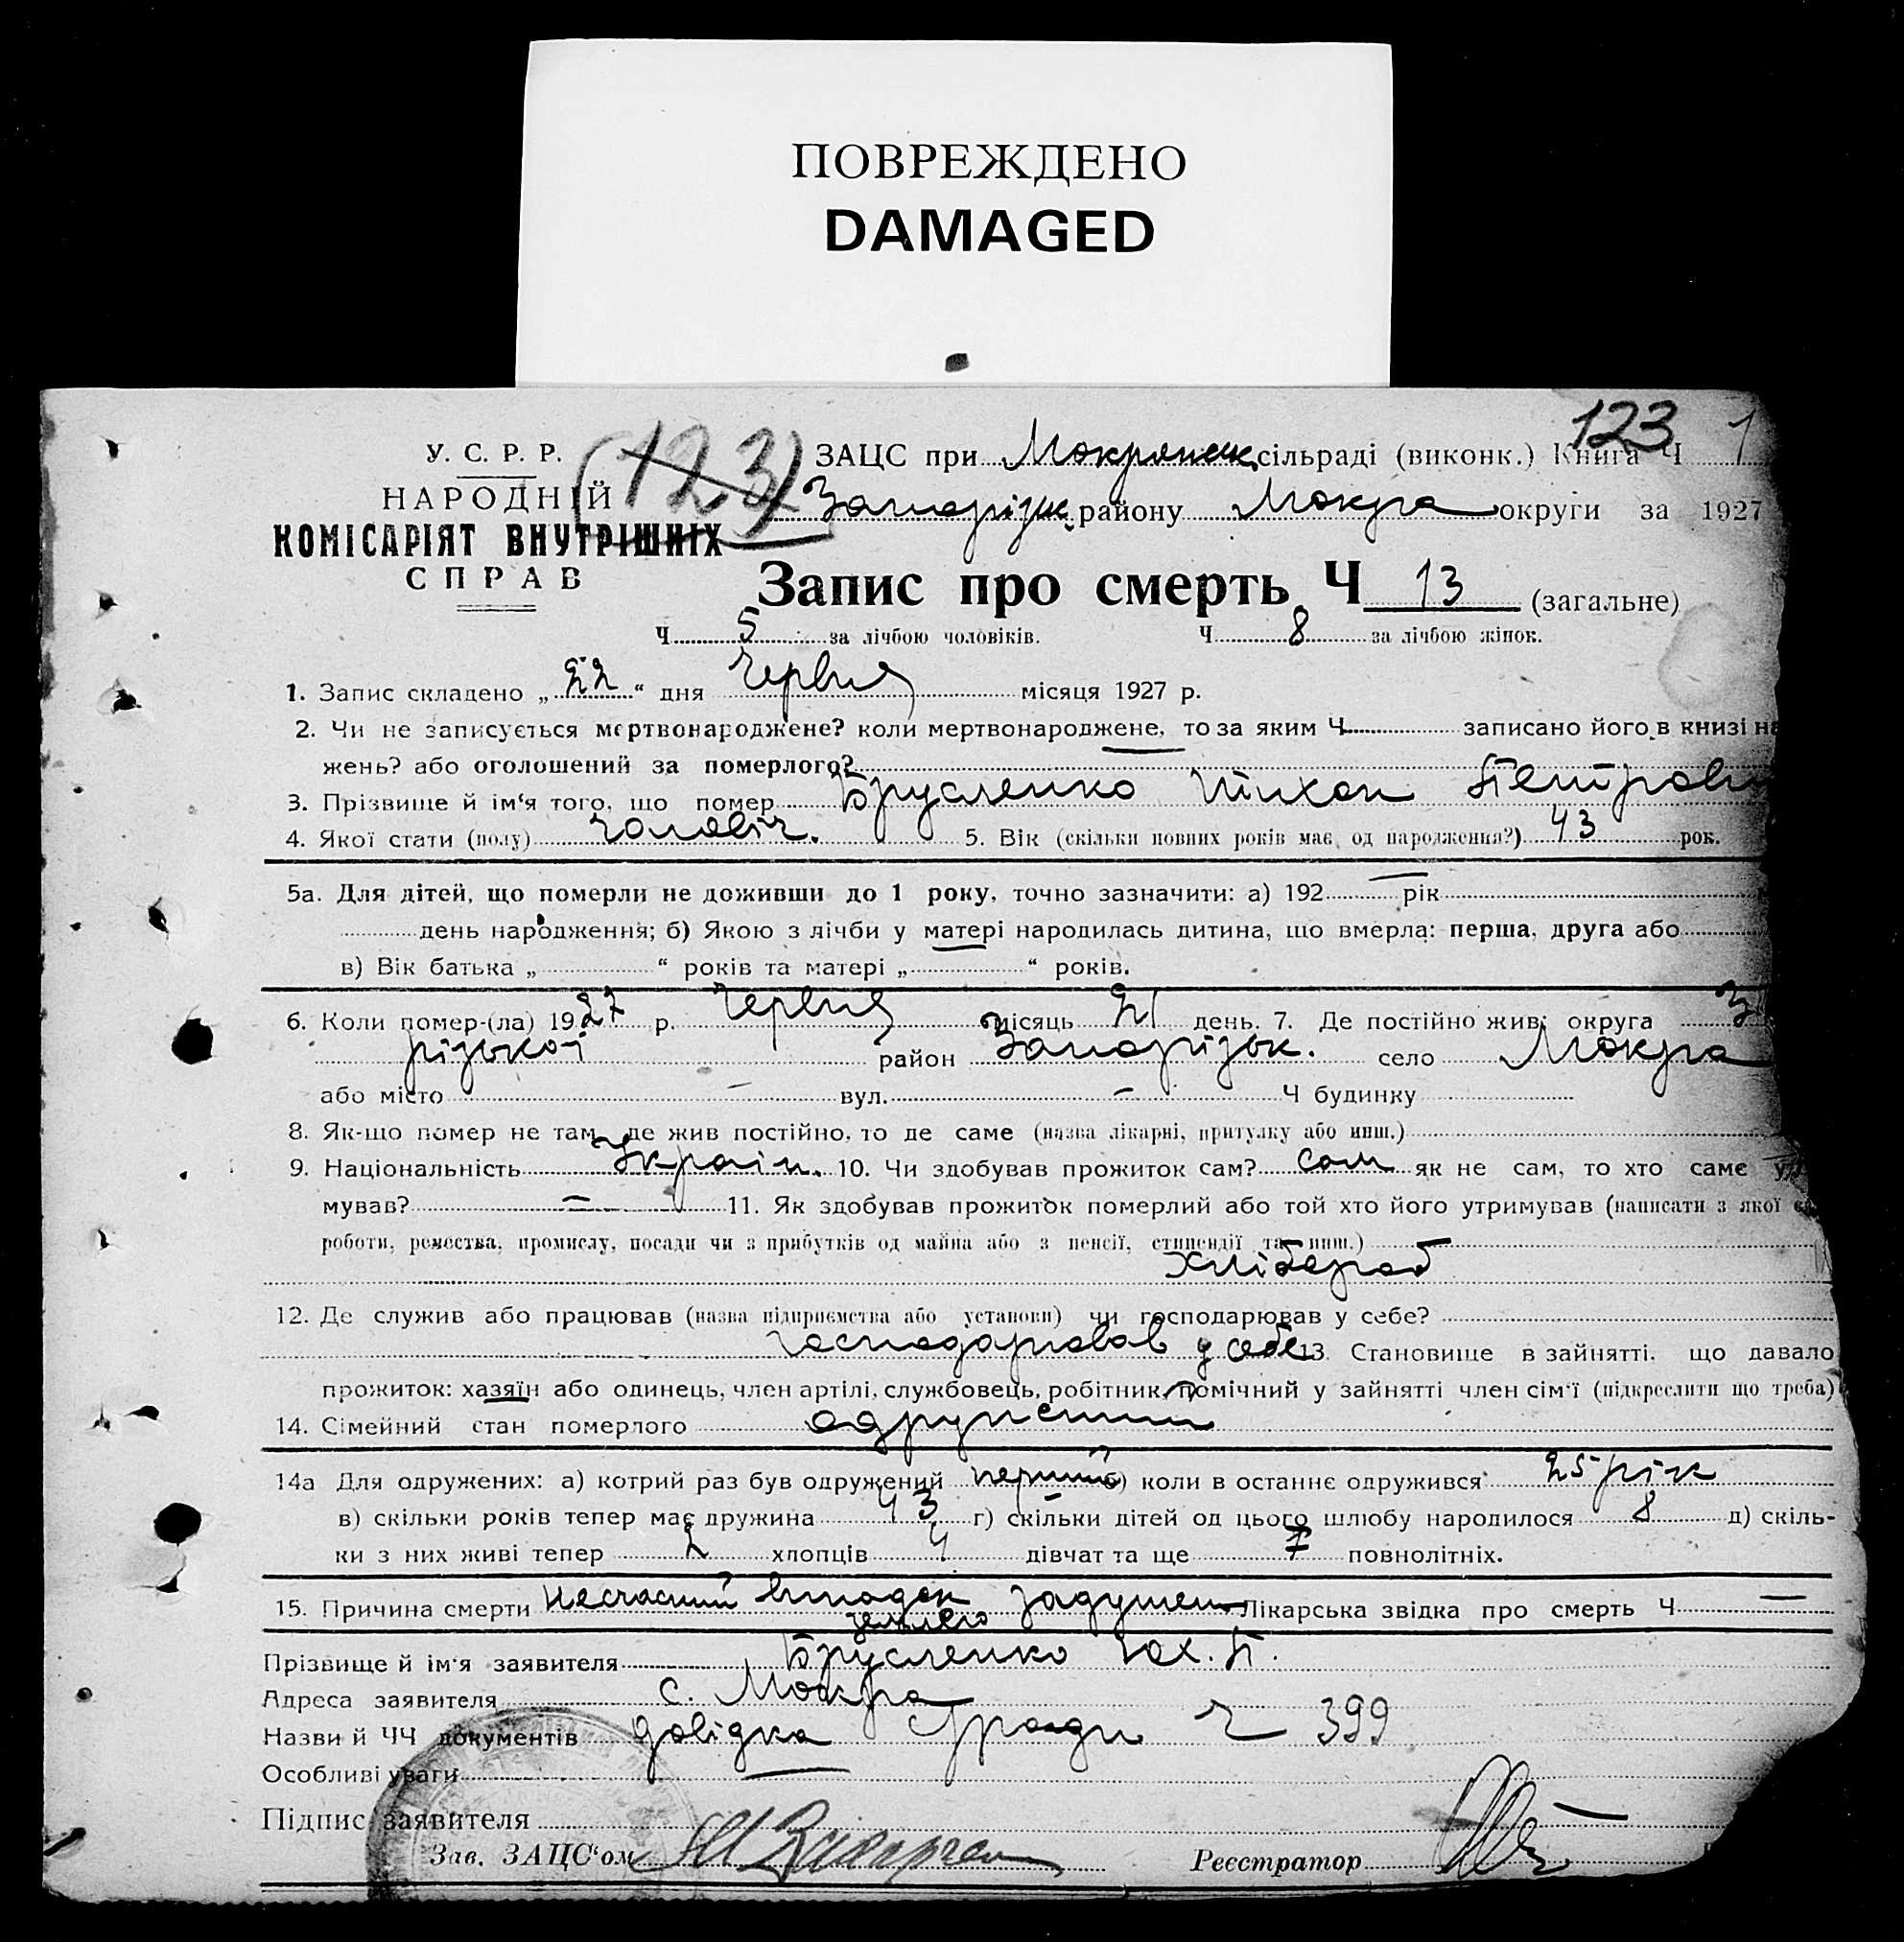 ПОВРЕЖДЕНО
DAMAGED
123 1
У. С. Р. Р. (123) ЗАЦС при Мокрянськ сільраді (виконк.) Книга Ч
НАРОДНІЙ Запорізьк. району Мокра округи за 1927
КОМІСАРІЯТ ВНУТРІШНІХ
СПРАВ
Запис про смерть, Ч 13 (загальне)
Ч 5 за лічбою чоловіків. Ч 8 за лічбою жінок.
1. Запис складено „ 22 “ дня червня місяця 1927 р.
2. Чи не записується мертвонароджене? коли мертвонароджене, то за яким Ч — записано його в книзі на
жень? або оголошений за померлого?
3. Прізвище й ім‘я того, що помер Брусленко Тихон Петрови
4. Якої стати (полу) чоловіч. 5. Вік (скільки повних років має од народження?) 43 рок.
5а. Для дітей, що померли не доживши до 1 року, точно зазначити: а) 192 — рік
день народження; б) Якою з лічби у матері народилась дитина, що вмерла: перша, друга або
в) Вік батька „ “ років та матері „ “ років.
6. Коли помер-(ла) 1927 р. червня місяць 21 день. 7. Де постійно жив: округа З
різької район Запорізьк. село Мокра
або місто — вул. — Ч будинку
8. Як-що помер не там, де жив постійно, то де саме (назва лікарні, притулку або инш.)
9. Національність Україн. 10. Чи здобував прожиток сам? сам як не сам, то хто саме у
мував? — 11. Як здобував прожиток померлий або той хто його утримував (написати з якої
роботи, ремества, промислу, посади чи з прибутків од майна або з пенсії, стипендії та инш.)
хлібороб
12. Де служив або працював (назва підприємства або установи) чи господарював у себе?
господарював у себе 13. Становище в зайнятті, що давало
прожиток: хазяїн або одинець, член артілі, службовець, робітник, помічний у зайнятті член сім‘ї (підкреслити що треба)
14. Сімейний стан померлого
14а Для одружених: а) котрий раз був одружений перший б) коли в останнє одружився 25 рік
в) скільки років тепер має дружина 43 г) скільки дітей од цього шлюбу народилося 8 д) скіль-
ки з них живі тепер 2 хлопців 4 дівчат та ще 7 повнолітніх.
15. Причина смерти несчасний випадок задушен Лікарська звідка про смерть Ч —
землею
Прізвище й ім‘я заявителя Брусленко П.
Адреса заявителя с. Мокра
Назви й ЧЧ документів довідка с/ради Ч 399
Особливі уваги —
Підпис заявителя
Зав. ЗАЦС‘ом Реєстратор